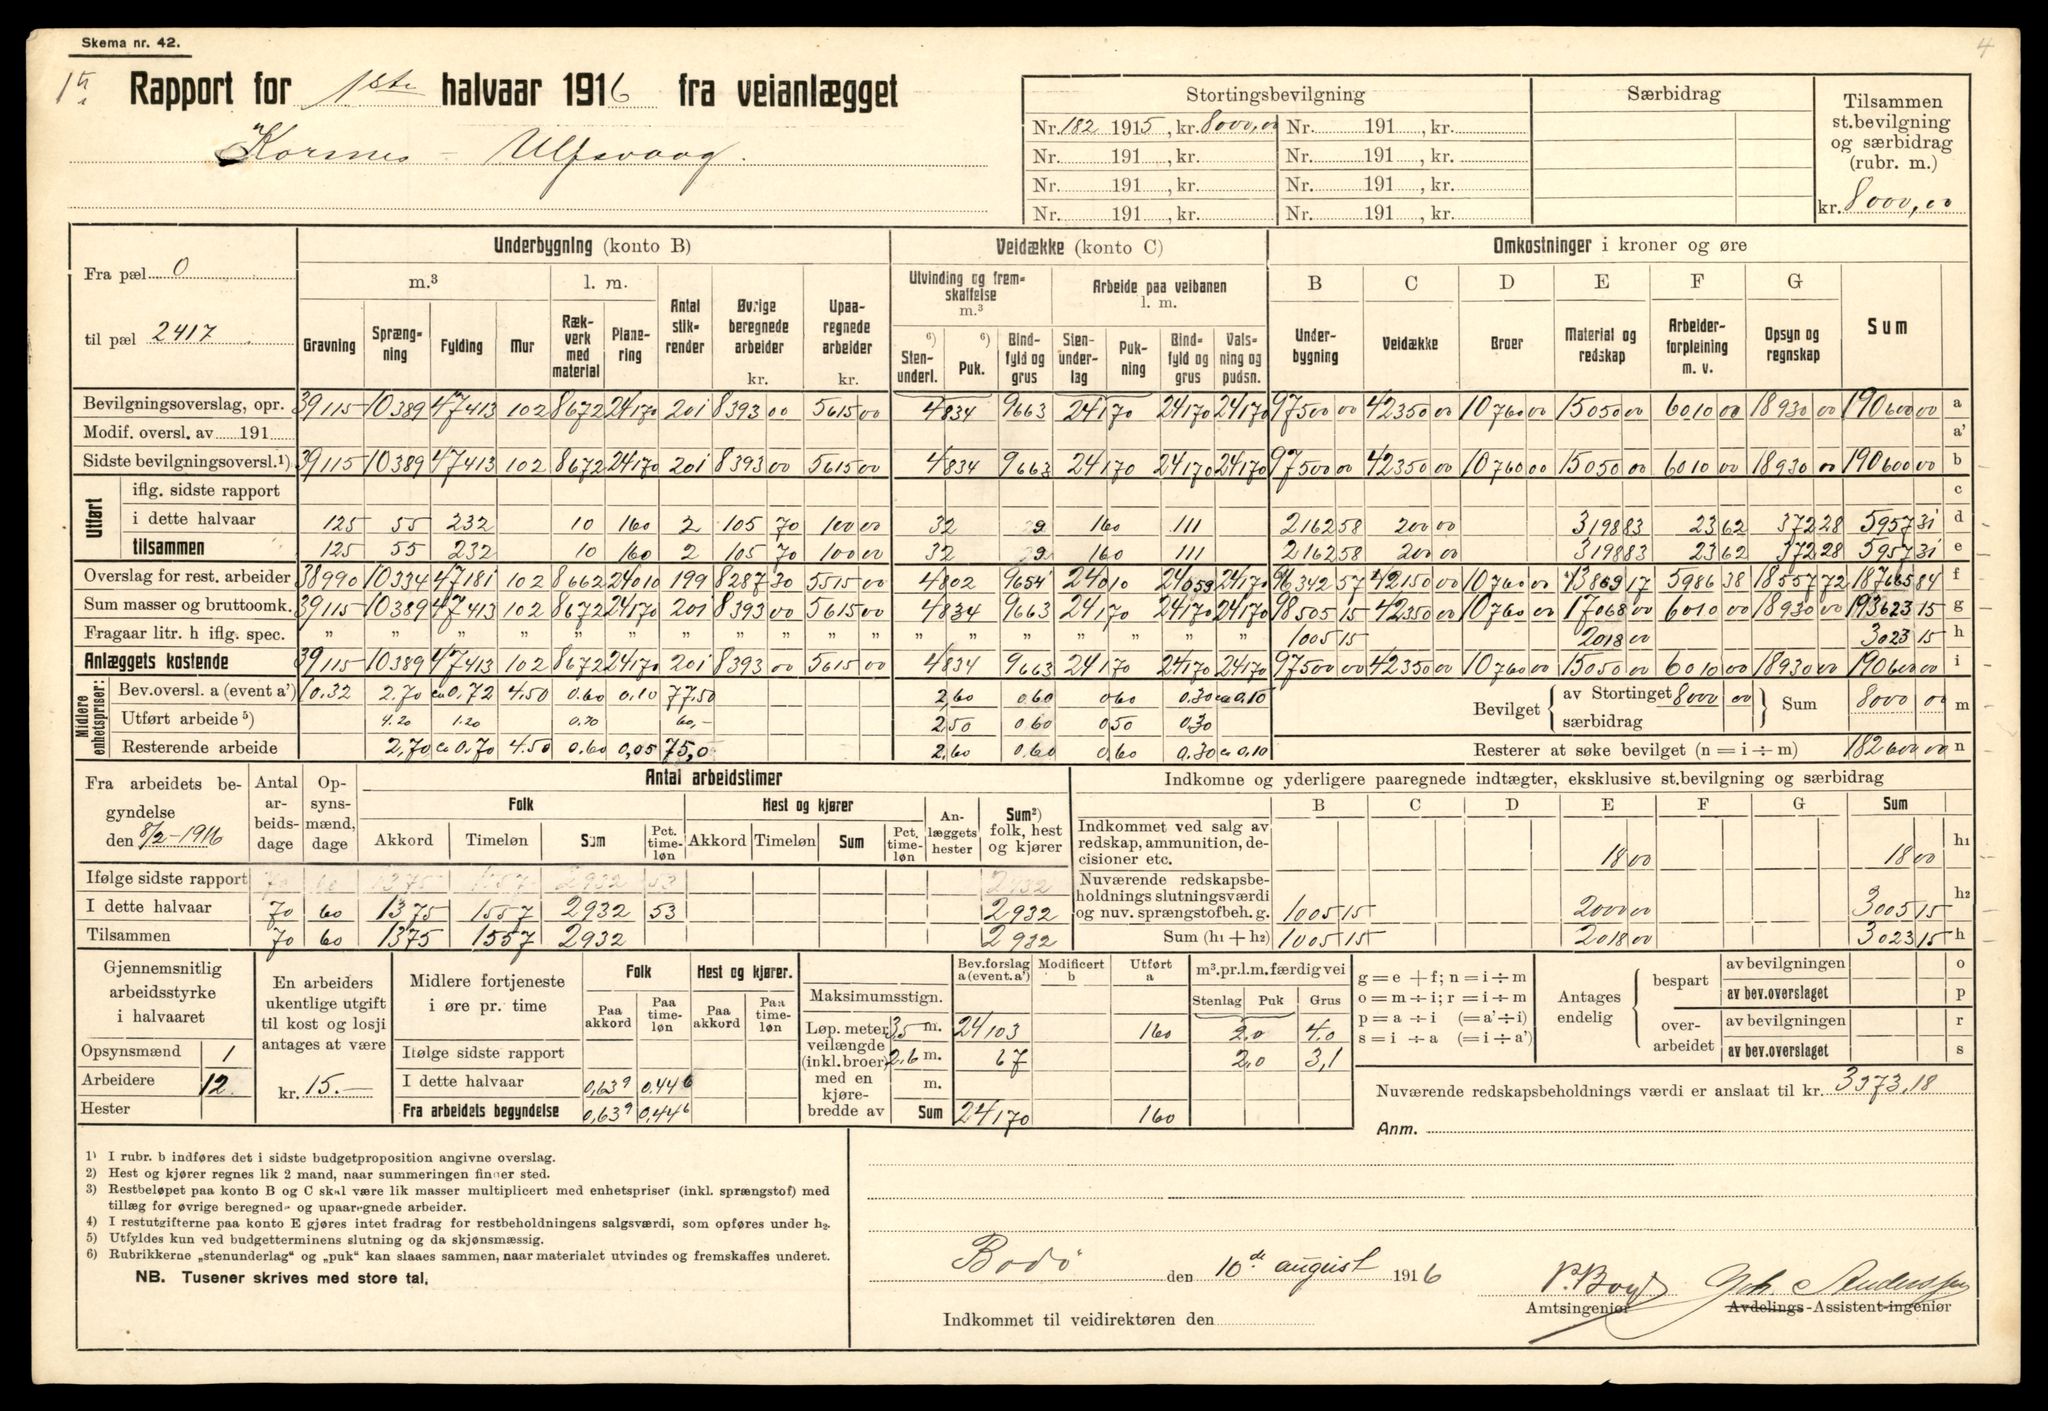 Skema nr. 42.
4
1ti Rapport for 1ste halvaar 1916 fra veianlægget
Kornes - Ulfsvaag.
Stortingsbevilgning
Særbidrag
Tilsammen st.bevilgning og særbidrag (rubr. m.)
Nr. 182 1915, kr. 8000,00 Nr. 191 , kr.
Nr. 191 , kr. Nr. 191 , kr.
Nr. 191 , kr. Nr. 191 , kr.
Nr. 191 , kr. Nr. 191 , kr.
kr. 8000,00
Fra pæl 0
til pæl 2417
Underbygning (konto B) Veidække (konto C) Omkostninger i kroner og øre
m.³ l. m. Utvinding og fremskaffelse m.³ Arbeide paa veibanen l. m. B C D E F G
Gravning Sprængning Fylding Mur Rækverk med material Planering Antal stikrender Øvrige beregnede arbeider kr. Upaaregnede arbeider kr. 6) Stenunderl. 6) Puk. Bindfyld og grus Stenunderlag Pukning Bindfyld og grus Valsning og pudsn. Underbygning Veidække Broer Material og redskap Arbeiderforpleining m. v. Opsyn og regnskap Sum
Bevilgningsoverslag, opr. 39115 10389 47413 102 8672 24170 201 8393 00 5615 00 4834 9663 24170 24170 24170 97500 00 42350 00 10760 00 15050 00 6010 00 18930 00 190600 00 a
Modif. oversl. av 191 a'
Sidste bevilgningsoversl.¹) 39115 10389 47413 102 8672 24170 201 8393 00 5615 00 4834 9663 24170 24170 24170 97500 00 42350 00 10760 00 15050 00 6010 00 18930 00 190600 00 b
Utført
iflg. sidste rapport c
i dette halvaar 125 55 232 10 160 2 105 70 100 00 32 9 160 111 2162 58 200 00 3198 83 23 62 372 28 5957 31 d
tilsammen 125 55 232 10 160 2 105 70 100 00 32 9 160 111 2162 58 200 00 3198 83 23 62 372 28 5957 31 e
Overslag for rest. arbeider 38990 10334 47181 102 8662 24010 199 8287 30 5515 00 4802 9654 24010 24059 24170 96342 57 42150 00 10760 00 13869 17 5986 38 18557 72 187665 84 f
Sum masser og bruttoomk. 39115 10389 47413 102 8672 24170 201 8393 00 5615 00 4834 9663 24170 24170 24170 98505 15 42350 00 10760 00 17068 00 6010 00 18930 00 193623 15 g
Fragaar litr. h iflg. spec. " " " " " " " " " " " " " " " " " " 1005 15 2018 00 3023 15 h
Anlæggets kostende 39115 10389 47413 102 8672 24170 201 8393 00 5615 00 4834 9663 24170 24170 24170 97500 00 42350 00 10760 00 15050 00 6010 00 18930 00 190600 00 i
Midlere enhetspriser:
Bev.oversl. a (event a') 0.32 2.70 ca 0.72 4.50 0.60 0.10 77.50 2,60 0,60 0,60 0.30 ca 0.10
Utført arbeide⁵) 4.20 1.20 0.70 60,- 2,50 0,60 0,50 0.30
Resterende arbeide 2,70 ca 0.70 4.50 0.60 0,05 75,0 2,60 0.60 0.60 0.30 ca 0.10
Bevilget { av Stortinget 8000 00 særbidrag } Sum 8000 00 m
Resterer at søke bevilget (n = i ÷ m) 182600 00 n
Fra arbeidets begyndelse den 8/2-1916
Antal arbeidsdage
Opsynsmænd, dage
Antal arbeidstimer
Folk Hest og kjører
Akkord Timeløn Sum Pct. timeløn Akkord Timeløn Sum Pct. timeløn Anlæggets hester Sum²) folk, hest og kjører
Ifølge sidste rapport 70 60 1375 1557 2932 53 2932
I dette halvaar 70 60 1375 1557 2932 53 2932
Tilsammen 70 60 1375 1557 2932 2932
Indkomne og yderligere paaregnede indtægter, eksklusive st.bevilgning og særbidrag
B C D E F G Sum
Indkommet ved salg av redskap, ammunition, decisioner etc. 18 00 18 00 h1
Nuværende redskapsbeholdnings slutningsværdi og nuv. sprængstofbeh. g. 1005 15 2000 00 3005 15 h2
Sum (h1 + h2) 1005 15 2018 00 3023 15 h
Gjennemsnitlig arbeidsstyrke i halvaaret
Opsynsmænd 1
Arbeidere 12
Hester
En arbeiders ukentlige utgift til kost og losji antages at være
kr. 15.-
Midlere fortjeneste i øre pr. time
Folk Hest og kjører.
Paa akkord Paa timeløn Paa akkord Paa timeløn
Ifølge sidste rapport
I dette halvaar 0,63⁹ 0,44⁶
Fra arbeidets begyndelse 0,63⁹ 0,44⁶
Maksimumsstign.
Bev.forslag a (event. a') Modificert b Utført a m³.pr.l.m.færdig vei
Stenlag Puk Grus
Løp. meter veilængde (inkl. broer) med en kjørebredde av
3,5 m. 24103 160 2.0 4.0
2.6 m. 67 2.0 3,1
m.
Sum 24170 160
g = e + f; n = i ÷ m
o = m ÷ i; r = i ÷ m
p = a ÷ i (= a' ÷ i)
s = i ÷ a (= i ÷ a')
Antages endelig
bespart av bevilgningen o
av bev.overslaget p
overarbeidet av bevilgningen r
av bev.overslaget s
Nuværende redskapsbeholdnings værdi er anslaat til kr. 3973,18
Anm.
1) I rubr. b indføres det i sidste budgetproposition angivne overslag.
2) Hest og kjører regnes lik 2 mand, naar summeringen finner sted.
3) Restbeløpet paa konto B og C skal være lik masser multiplicert med enhetspriser (inkl. sprængstof) med
tillæg for øvrige beregnede og upaaregnede arbeider.
4) I restutgifterne paa konto E gjøres intet fradrag for restbeholdningens salgsværdi, som opføres under h2.
5) Utfyldes kun ved budgetterminens slutning og da skjønsmæssig.
6) Rubrikkerne „stenunderlag" og „puk" kan slaaes sammen, naar materialet utvindes og fremskaffes underet.
NB. Tusener skrives med store tal.
Bodø den 10de august 1916
Indkommet til veidirektøren den
Amtsingeniør
Joh. Anderssen
Avdelings-Assistent-ingeniør